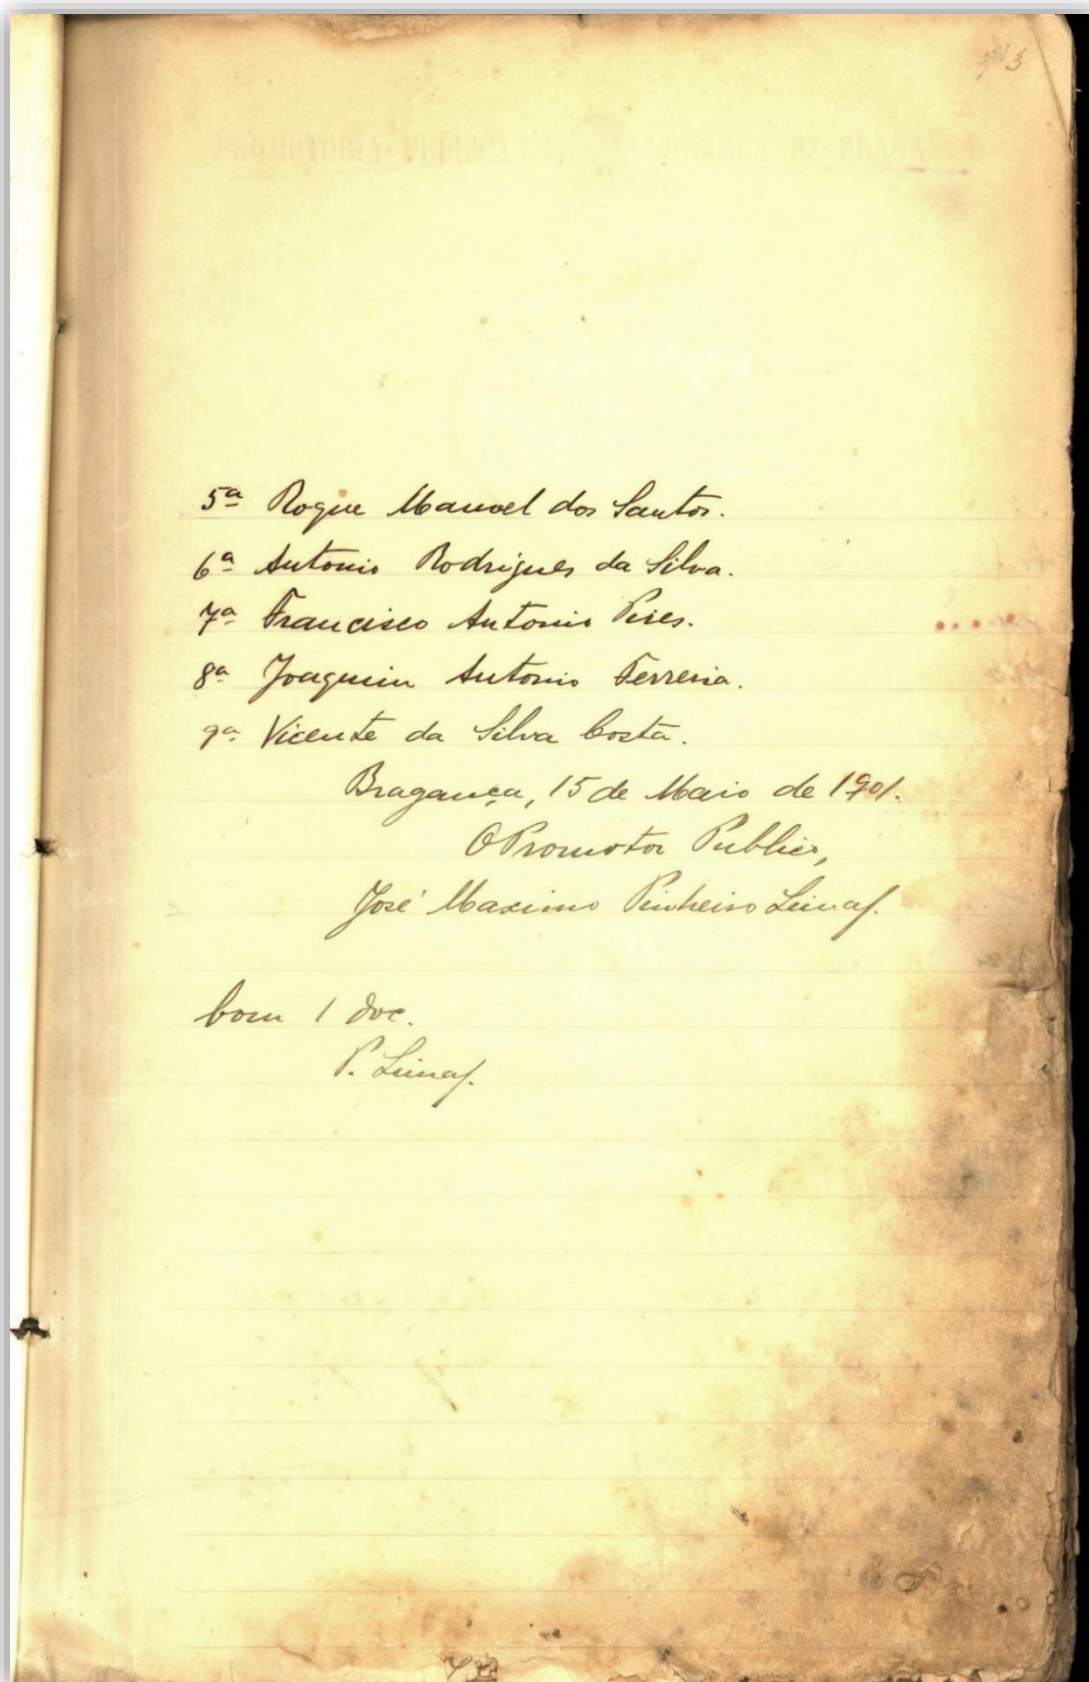 3
5ª Roque Manoel dos Santos.
6ª Antonio Rodrigues da Silva.
7ª Francisco Antonio Pires.
8ª Joaquim Antonio Ferreira.
9ª Vicente da Silva Costa.
Bragança, 15 de Maio de 1901.
O Promotor Publico,
José Maximo Pinheiro Lima f.
Com 1 doc.
P. Lima f.